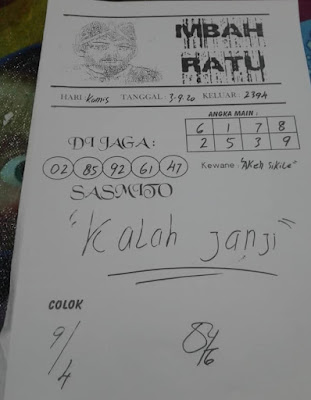 MBAH
RATU
HARI: Kamis TANGGAL: 3-9-20 KELUAR: 2394
ANGKA MAIN :
6 1 7 8
2 5 3 9
DI JAGA:
02 85 92 61 47
Kewane: "Akeh sikile"
SASMITO
"Kalah janji"
COLOK
9/4